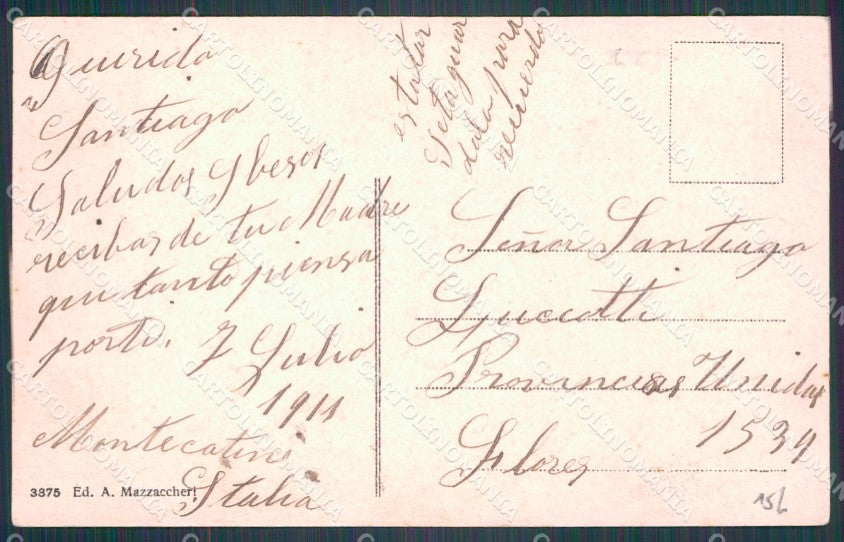 Querido
Santiago
Saludos y besos
recibas de tu Madre
que tanto piensa
por ti. 7 Julio
1911
Montecatini
Italia
3375 Ed. A. Mazzaccheri
data para
recuerdo
Señor Santiago
Luccotti
Provincias Unidas
1534
Flores
15L
CARTOLINOMANIA